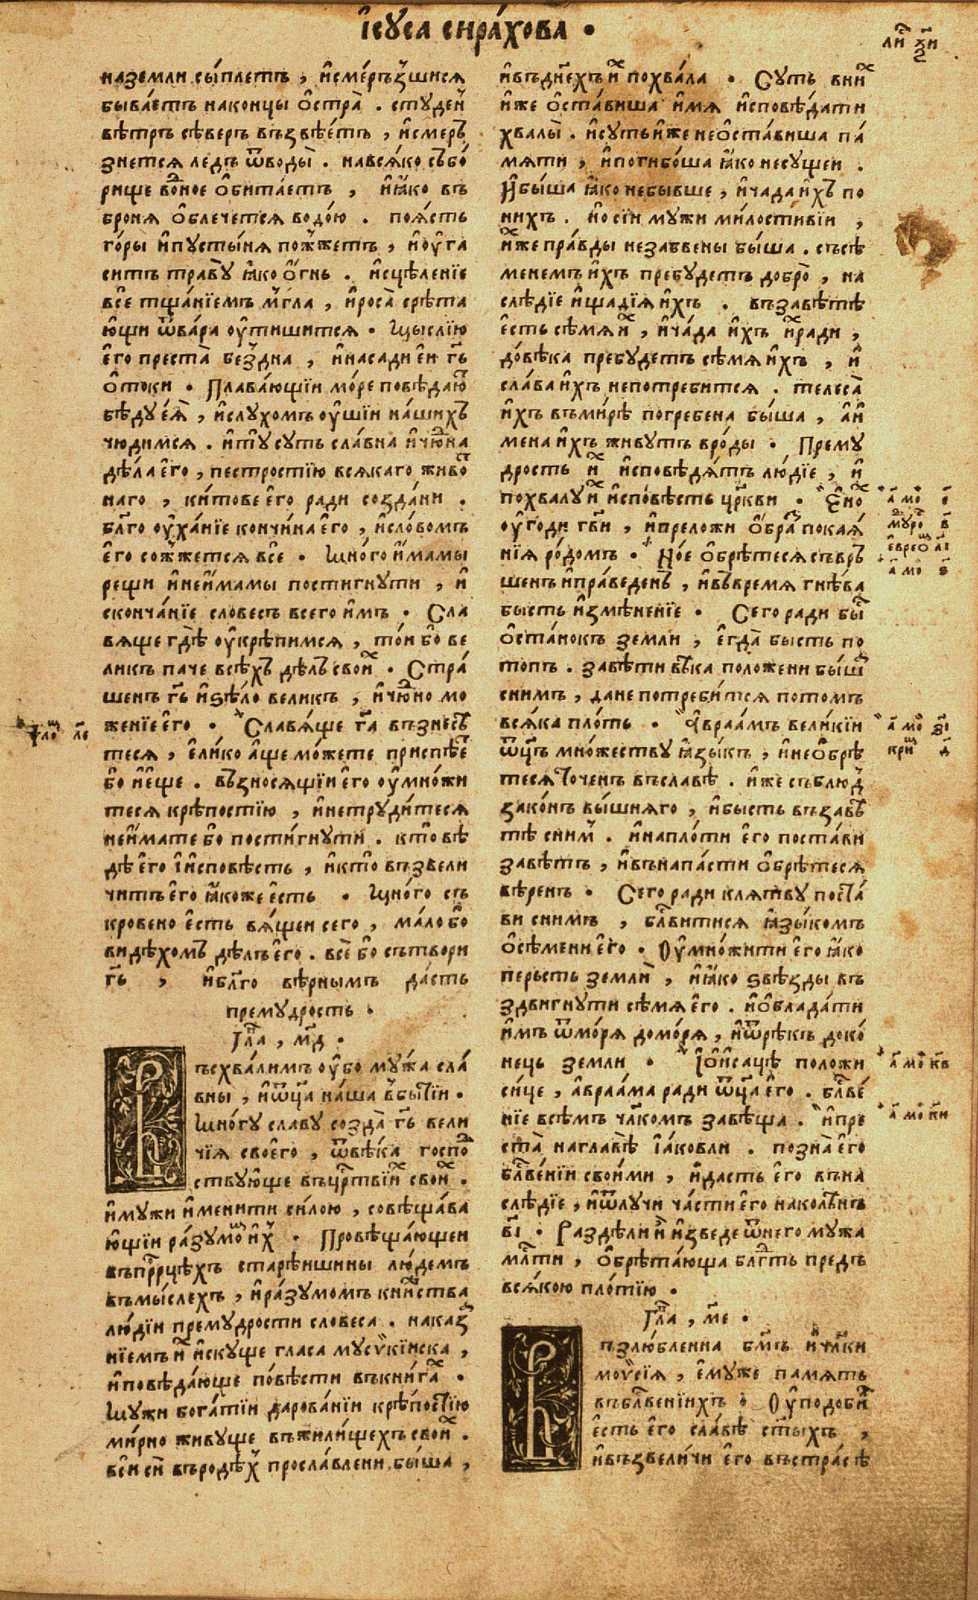 і҆сꙋса сирахова •
наземли сыплетъ , и҆смеръзшисѧ
бываетъ наконцы ѻ҆стра . студен
вѣтръ сѣверъ възвѣетъ , и҆смеръ
знетсѧ ледъ ѿводы . навсѧко събо
рище водное ѻ҆битаетъ , и҆ꙗ҆ко въ
бронѧ ѻ҆блечетсѧ водою . поѧсть
горы и҆пустынѧ пожжетъ , и҆оу҆га
ситъ траву ꙗ҆ко ѻ҆гнь . и҆сцѣленїе
все тщанїемъ мгла , и҆роса срѣта
ющи ѿвара оу҆тишитсѧ • Мыслїю
е҆го преста бездна , и҆насади еи гь
ѻ҆токи • Плавающїи море повѣдаю
бѣду еѧ , и҆слухомъ оу҆шїи нашихъ
чюдимсѧ . и҆ту суть славна и҆чюдна
дѣла е҆го , пестростїю всѧкаго живо
наго , китове е҆го ради создани .
блго оу҆ханїе кончина е҆го , и҆словомъ
е҆го сожжетсѧ все • Много и҆мамы
рещи и҆неи҆мамы постигнути , и҆
скончанїе словесъ всего и҆мъ • Сла
вѧще гдѣ оу҆крѣпимсѧ , тои бо ве
ликъ паче всѣхъ дѣлъ свои • Стра
шенъ гь и҆ѕѣло великъ , и҆чюдно мо
женїе е҆го • Славѧще га възнесѣ
тесѧ , е҆лико аще можете приспѣе
бо и҆еще . възносѧщїи е҆го оу҆множи
тесѧ крѣпостїю , и҆нетрудитесѧ
неи҆мате бо постигнути . кто вѣ
дѣ е҆го и҆исповѣсть , и҆кто възвели
читъ е҆го ꙗ҆коже есть • Много съ
кровено е҆сть вѧщеи сего , мало бо
видѣхомъ дѣлъ е҆го . все бо сътвори
гь , и҆блго вѣрнымъ дасть
премудрость .
Гла , мд .
Въсхвалимъ оу҆бо мужа сла
вны , и҆ѿца наша вбытїи .
Многу славу созда гь вели
чїѧ своего , ѿвѣка госпо
ствующе въцртвїи свои .
и҆мужи и҆менити силою , совѣщава
ющїи разумо и҆х • Провѣщающеи
въпрⷪрцѣхъ старѣишины людемъ
въмыслехъ , и҆разумомъ книства
людїи премудрости словеса . наказ
нїемъ и҆ и҆скуще гласа мусикїиска ,
и҆повѣдающе повѣсти въкнига •
Мужи богатїи дарованїи крѣпостїю
мирно живуще въжилищехъ свои .
вси си въродѣх прославлени быша ,
ли хи
и҆въднехъ и҆ похвала • Суть вни
и҆же ѻ҆ставиша и҆мѧ и҆сповѣдати
хвалы . и҆суть и҆же неѻ҆ставиша па
мѧти , и҆погибоша ꙗ҆ко несущеи .
И҆быша ꙗ҆ко небывше , и҆чада и҆хъ по
нихъ . но сїи мужи милостивїи ,
и҆же правды незабвены быша . съсѣ
менемъ и҆хъ пребудетъ добро , на
слѣдїе и҆щадїѧ и҆хъ . въ завѣтѣ
е҆сть сѣмѧ и҆ , и҆чада и҆хъ и҆ради ,
довѣка пребудетъ сѣмѧ и҆хъ , и҆
слава и҆хъ непотребитсѧ . телеса
и҆хъ въ мирѣ погребена быша , а҆и
мена и҆хъ живутъ вроды • Прему
дрость и҆ и҆сповѣдѧтъ людїе , и҆
похвалу и҆ и҆сповѣсть црькви • Е҆но
оу҆годи гви , и҆преложи ѻ҆бра покаѧ
нїѧ родомъ • Ное ѻ҆брѣтесѧ съвръ
шенъ и҆праведенъ , и҆въвремѧ гнѣва
бысть и҆змѣненїе • Сего ради бы
ѻ҆станокъ земли , е҆гда бысть по
топъ . завѣти вѣка положени быш
снимъ , дане потребитсѧ потомъ
всѧка плоть • А҆враамъ великїи
ѿцъ множеству ꙗ҆зыкъ , и҆неѻ҆брѣ
тесѧ точенъ въславѣ . и҆же съблюд
законъ вышнѧго , и҆бысть въ завѣ
тѣ сним . и҆наплоти его постави
завѣтъ , и҆внапасти ѻ҆брѣтесѧ
вѣренъ • Сего ради клѧтву поста
ви снимъ , блвитисѧ ꙗ҆зыкомъ
ѻ҆сѣмени е҆го . Оу҆множити его ꙗ҆ко
перьсть земли , и҆ꙗ҆ко ѕвѣзды въ
здвигнути сѣмѧ е҆го . и҆ѻ҆бладати
и҆мъ ѿморѧ доморѧ , и҆ѿрѣкъ доко
нець земли • И҆ѻ҆исацѣ положи
сице , а҆враама ради ѿца е҆го . блве
нїе всѣмъ члкомъ завѣща . и҆пре
ста наглавѣ і҆аковли . позна е҆го
блвенїи своими , и҆дасть е҆го въна
слѣдїе , и҆ѿлучи части е҆го наколѣнъ
вı . Раздѣли и҆ и҆зведе ѿнего мужа
млти , ѻ҆брѣтающа блгть предъ
всѧкою плотїю .
Гла , ме .
Възлюбленна бгмъ и҆члки
моѵсїѧ , е҆муже памѧть
въблвенїихъ . Оу҆подоби
е҆сть е҆го славѣ стыхъ ,
и҆възвеличи е҆го въстрасѣ